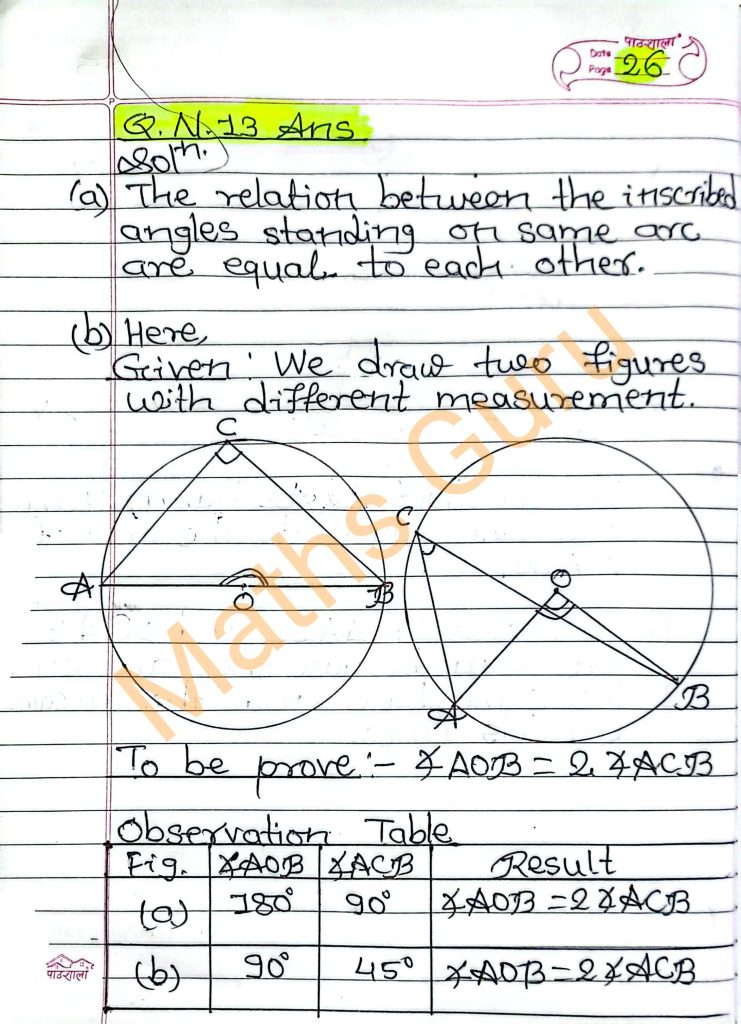 पाठशाला
Date
Page 26
Q.N.13 Ans
Sol^n.
(a) The relation between the inscribed
angles standing on same arc
are equal to each other.
(b) Here,
Given: We draw two figures
with different measurement.
C
A O B
C
O
A
B
To be prove:- ∡AOB = 2 ∡ACB
Observation Table
Fig. ∡AOB ∡ACB Result
(a) 180° 90° ∡AOB = 2∡ACB
(b) 90° 45° ∡AOB = 2∡ACB
पाठशाला
Maths Guru